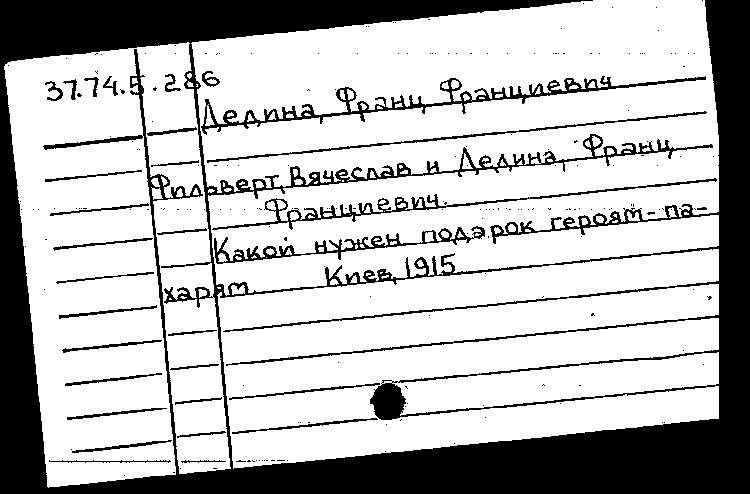 37.74.5.286
Дедина, Франц Францисвич
Фильверт, Вячеслав и Дедина, Франц
Францисвич.
Какой нужен подарок героям-па-
харям. Киев, 1915